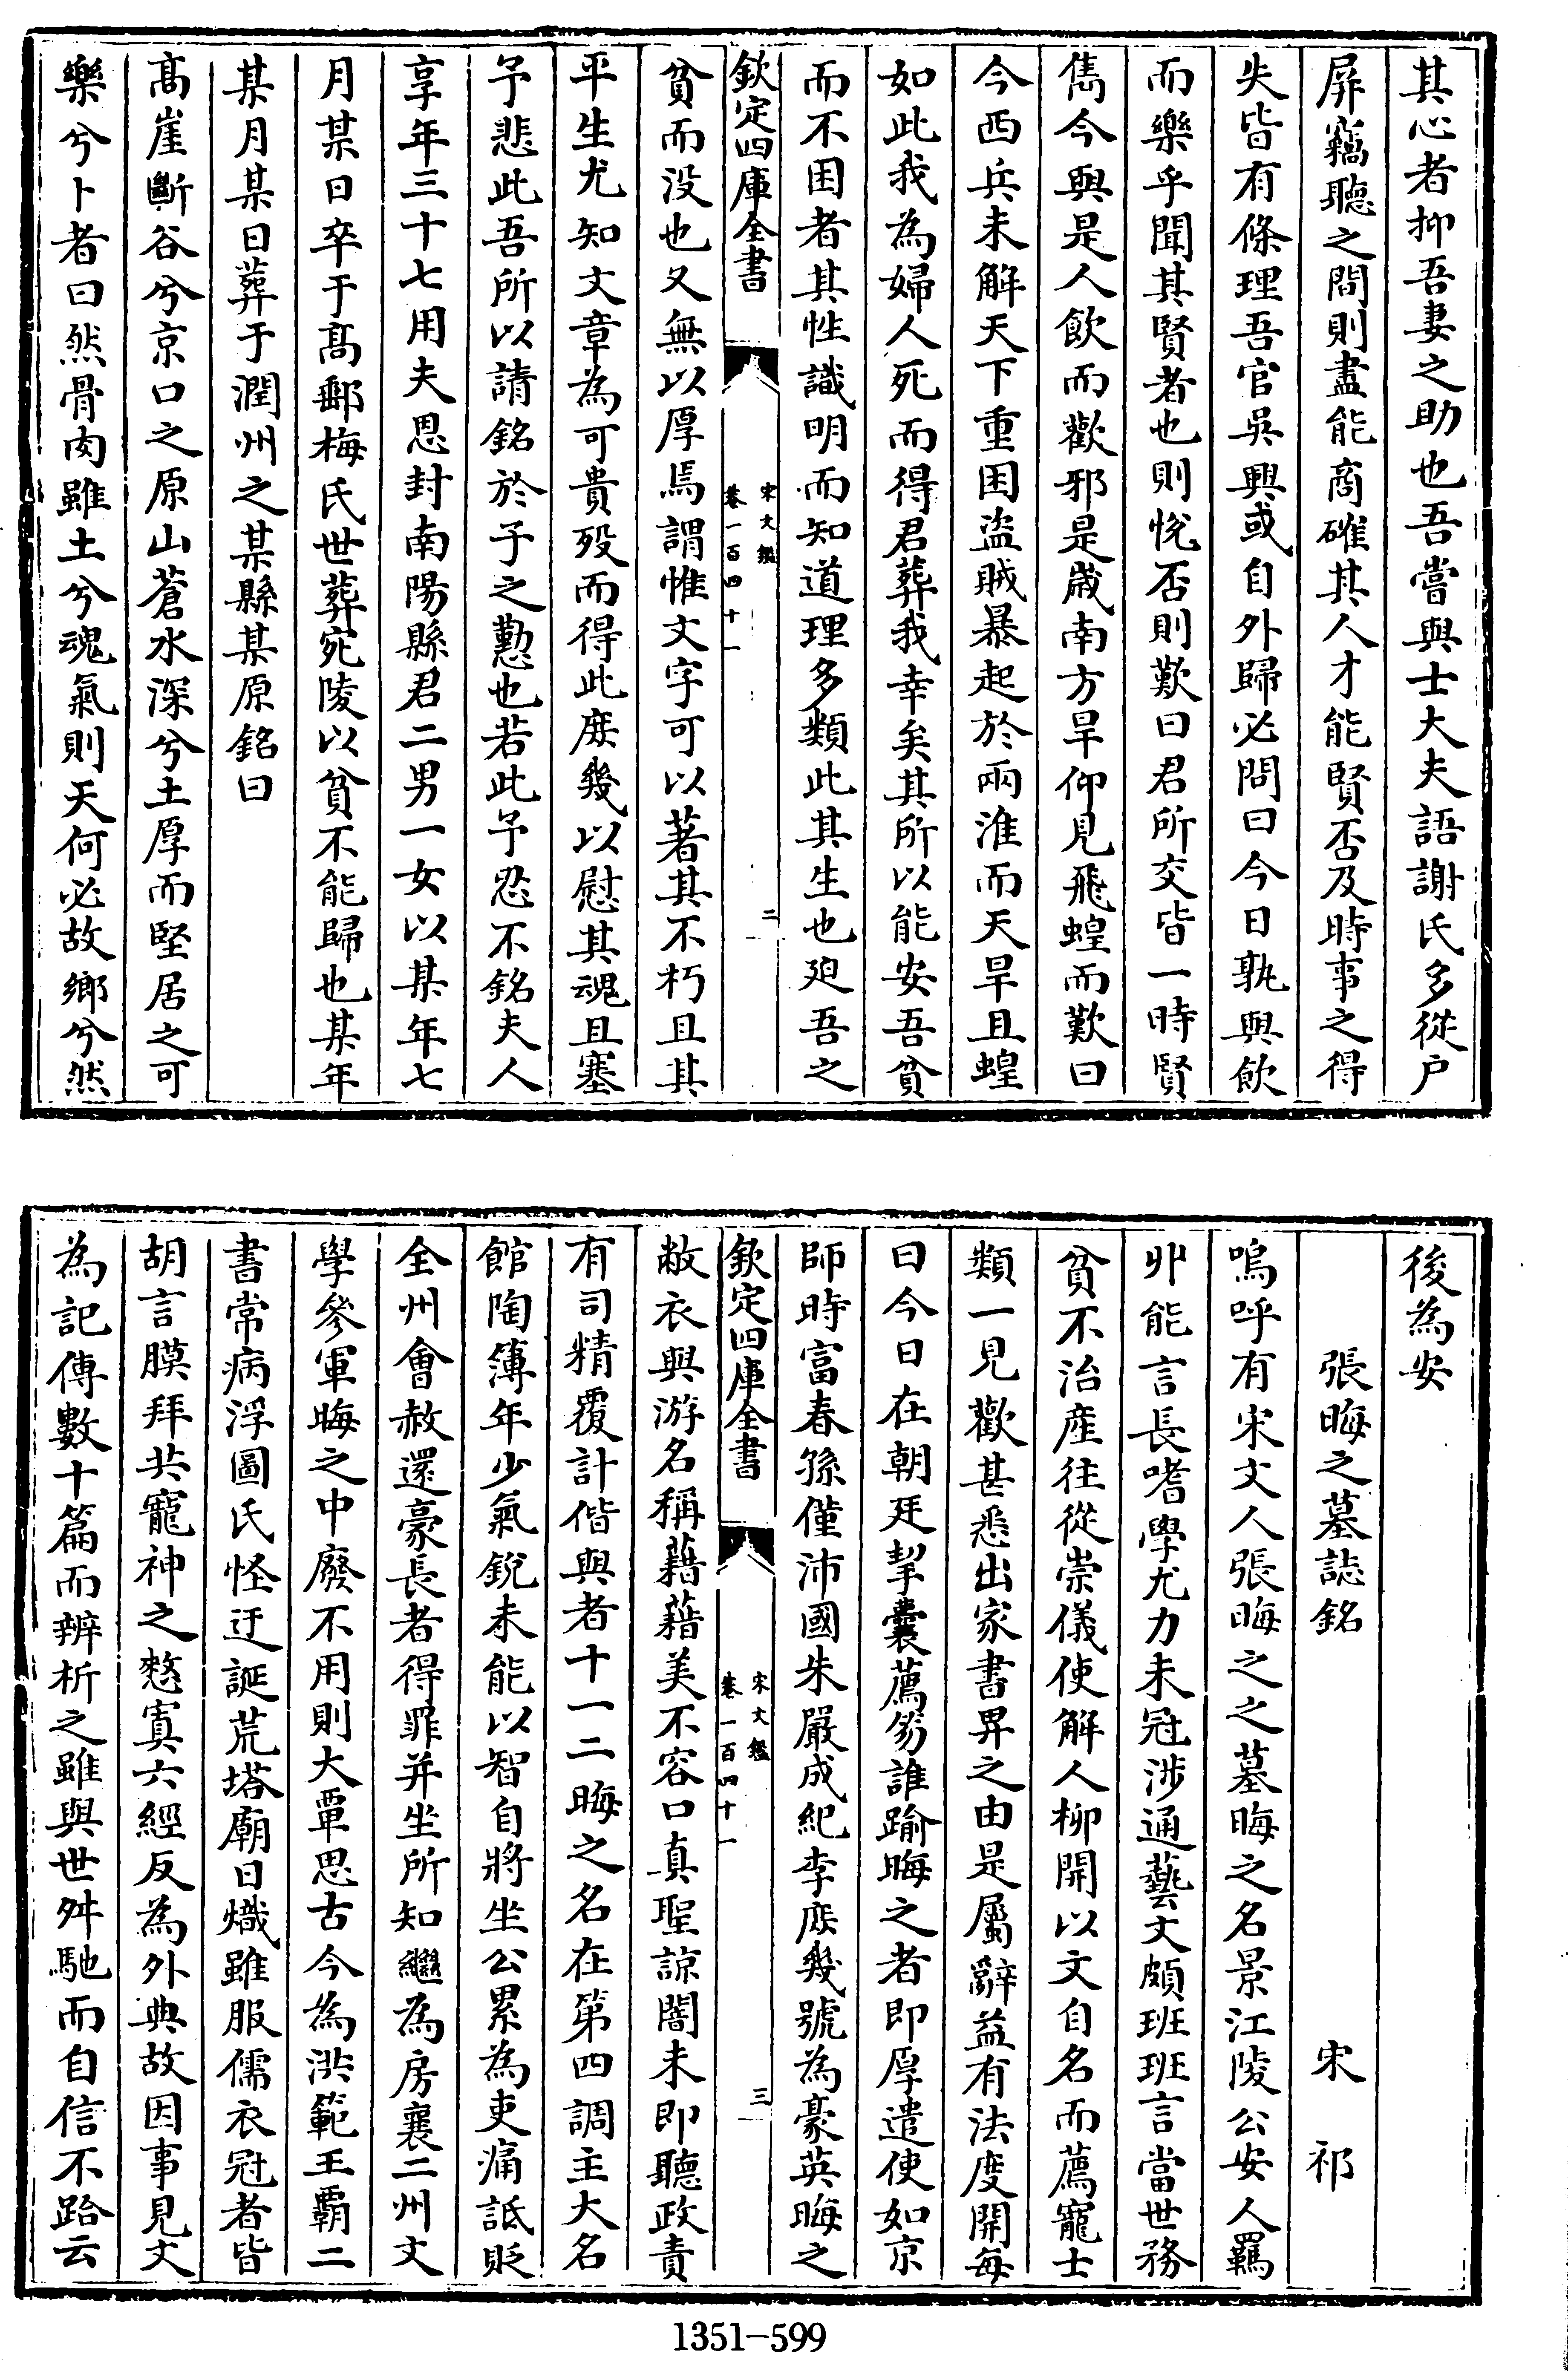 其心者抑吾妻之助也吾嘗與士大夫語謝氏多從户
屏竊聽之間則盡能商確其人才能賢否及時事之得
失皆有條理吾官吳興或自外歸必問曰今日孰與飲
而樂乎聞其賢者也則悅否則歎曰君所交皆一時賢
雋今與是人飲而歡邪是歲南方旱仰見飛蝗而歎曰
今西兵未解天下重困盜賊暴起於兩淮而天旱且蝗
如此我為婦人死而得君葬我幸矣其所以能安吾貧
而不困者其性識明而知道理多類此其生也迫吾之
欽定四庫全書
宋文鑑
卷一百四十一
二
貧而没也又無以厚焉謂惟文字可以著其不朽且其
平生尤知文章為可貴歿而得此庶幾以慰其魂且塞
予悲此吾所以請銘於子之懃也若此予忍不銘夫人
享年三十七用夫恩封南陽縣君二男一女以某年七
月某日卒于髙郵梅氏世葬宛陵以貧不能歸也某年
某月某日葬于潤州之某縣某原銘曰
髙崖斷谷兮京口之原山蒼水深兮土厚而堅居之可
樂兮卜者曰然骨肉雖土兮魂氣則天何必故鄉兮然
後為安
張晦之墓誌銘
宋祁
嗚呼有宋文人張晦之之墓晦之名景江陵公安人羈
丱能言長嗜學尤力未冠涉通藝文頗班班言當世務
貧不治產往從崇儀使解人柳開以文自名而薦寵士
類一見歡甚悉出家書畀之由是屬辭益有法度開每
曰今日在朝廷挈囊薦笏誰踰晦之者即厚遣使如京
師時富春孫僅沛國朱嚴成紀李庶幾號為豪英晦之
欽定四庫全書
宋文鑑
卷一百四十一
三
敝衣與游名稱藉藉美不容口真聖諒闇未即聽政責
有司精覆計偕與者十一二晦之名在第四調主大名
館陶簿年少氣銳未能以智自將坐公累為吏痛詆貶
全州會赦還豪長者得罪并坐所知繼為房襄二州文
學參軍晦之中廢不用則大覃思古今為洪範王霸二
書常病浮圖氏怪迂誕荒塔廟日熾雖服儒衣冠者皆
胡言膜拜共寵神之憗寘六經反為外典故因事見文
為記傳數十篇而辨析之雖與世舛馳而自信不跲云
1351-599